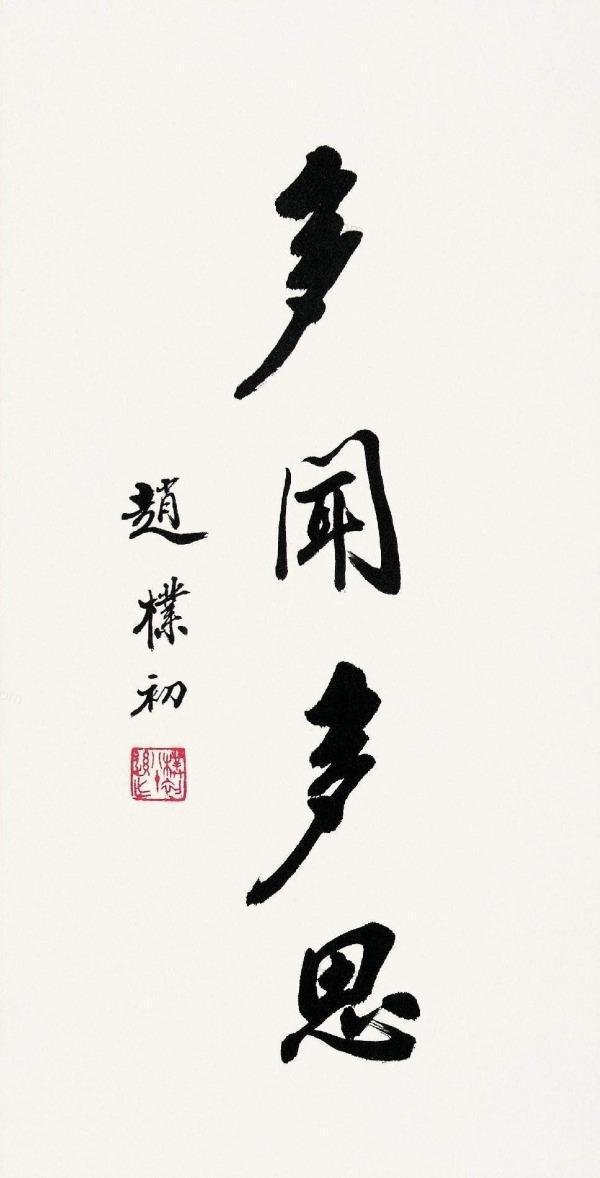 多聞多思
趙樸初